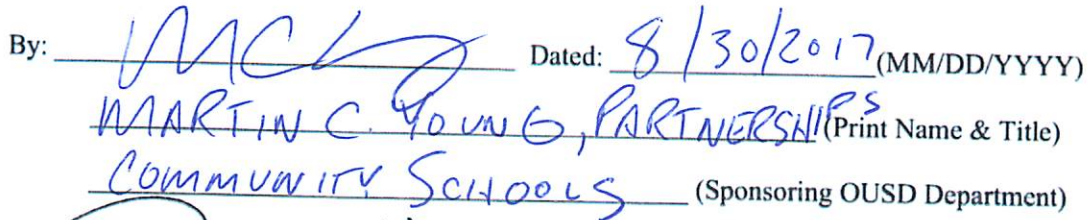 By: Dated: 8/30/2017 (MM/DD/YYYY)
MARTIN C. YOUNG, PARTNERSHIPS (Print Name & Title)
COMMUNITY SCHOOLS (Sponsoring OUSD Department)